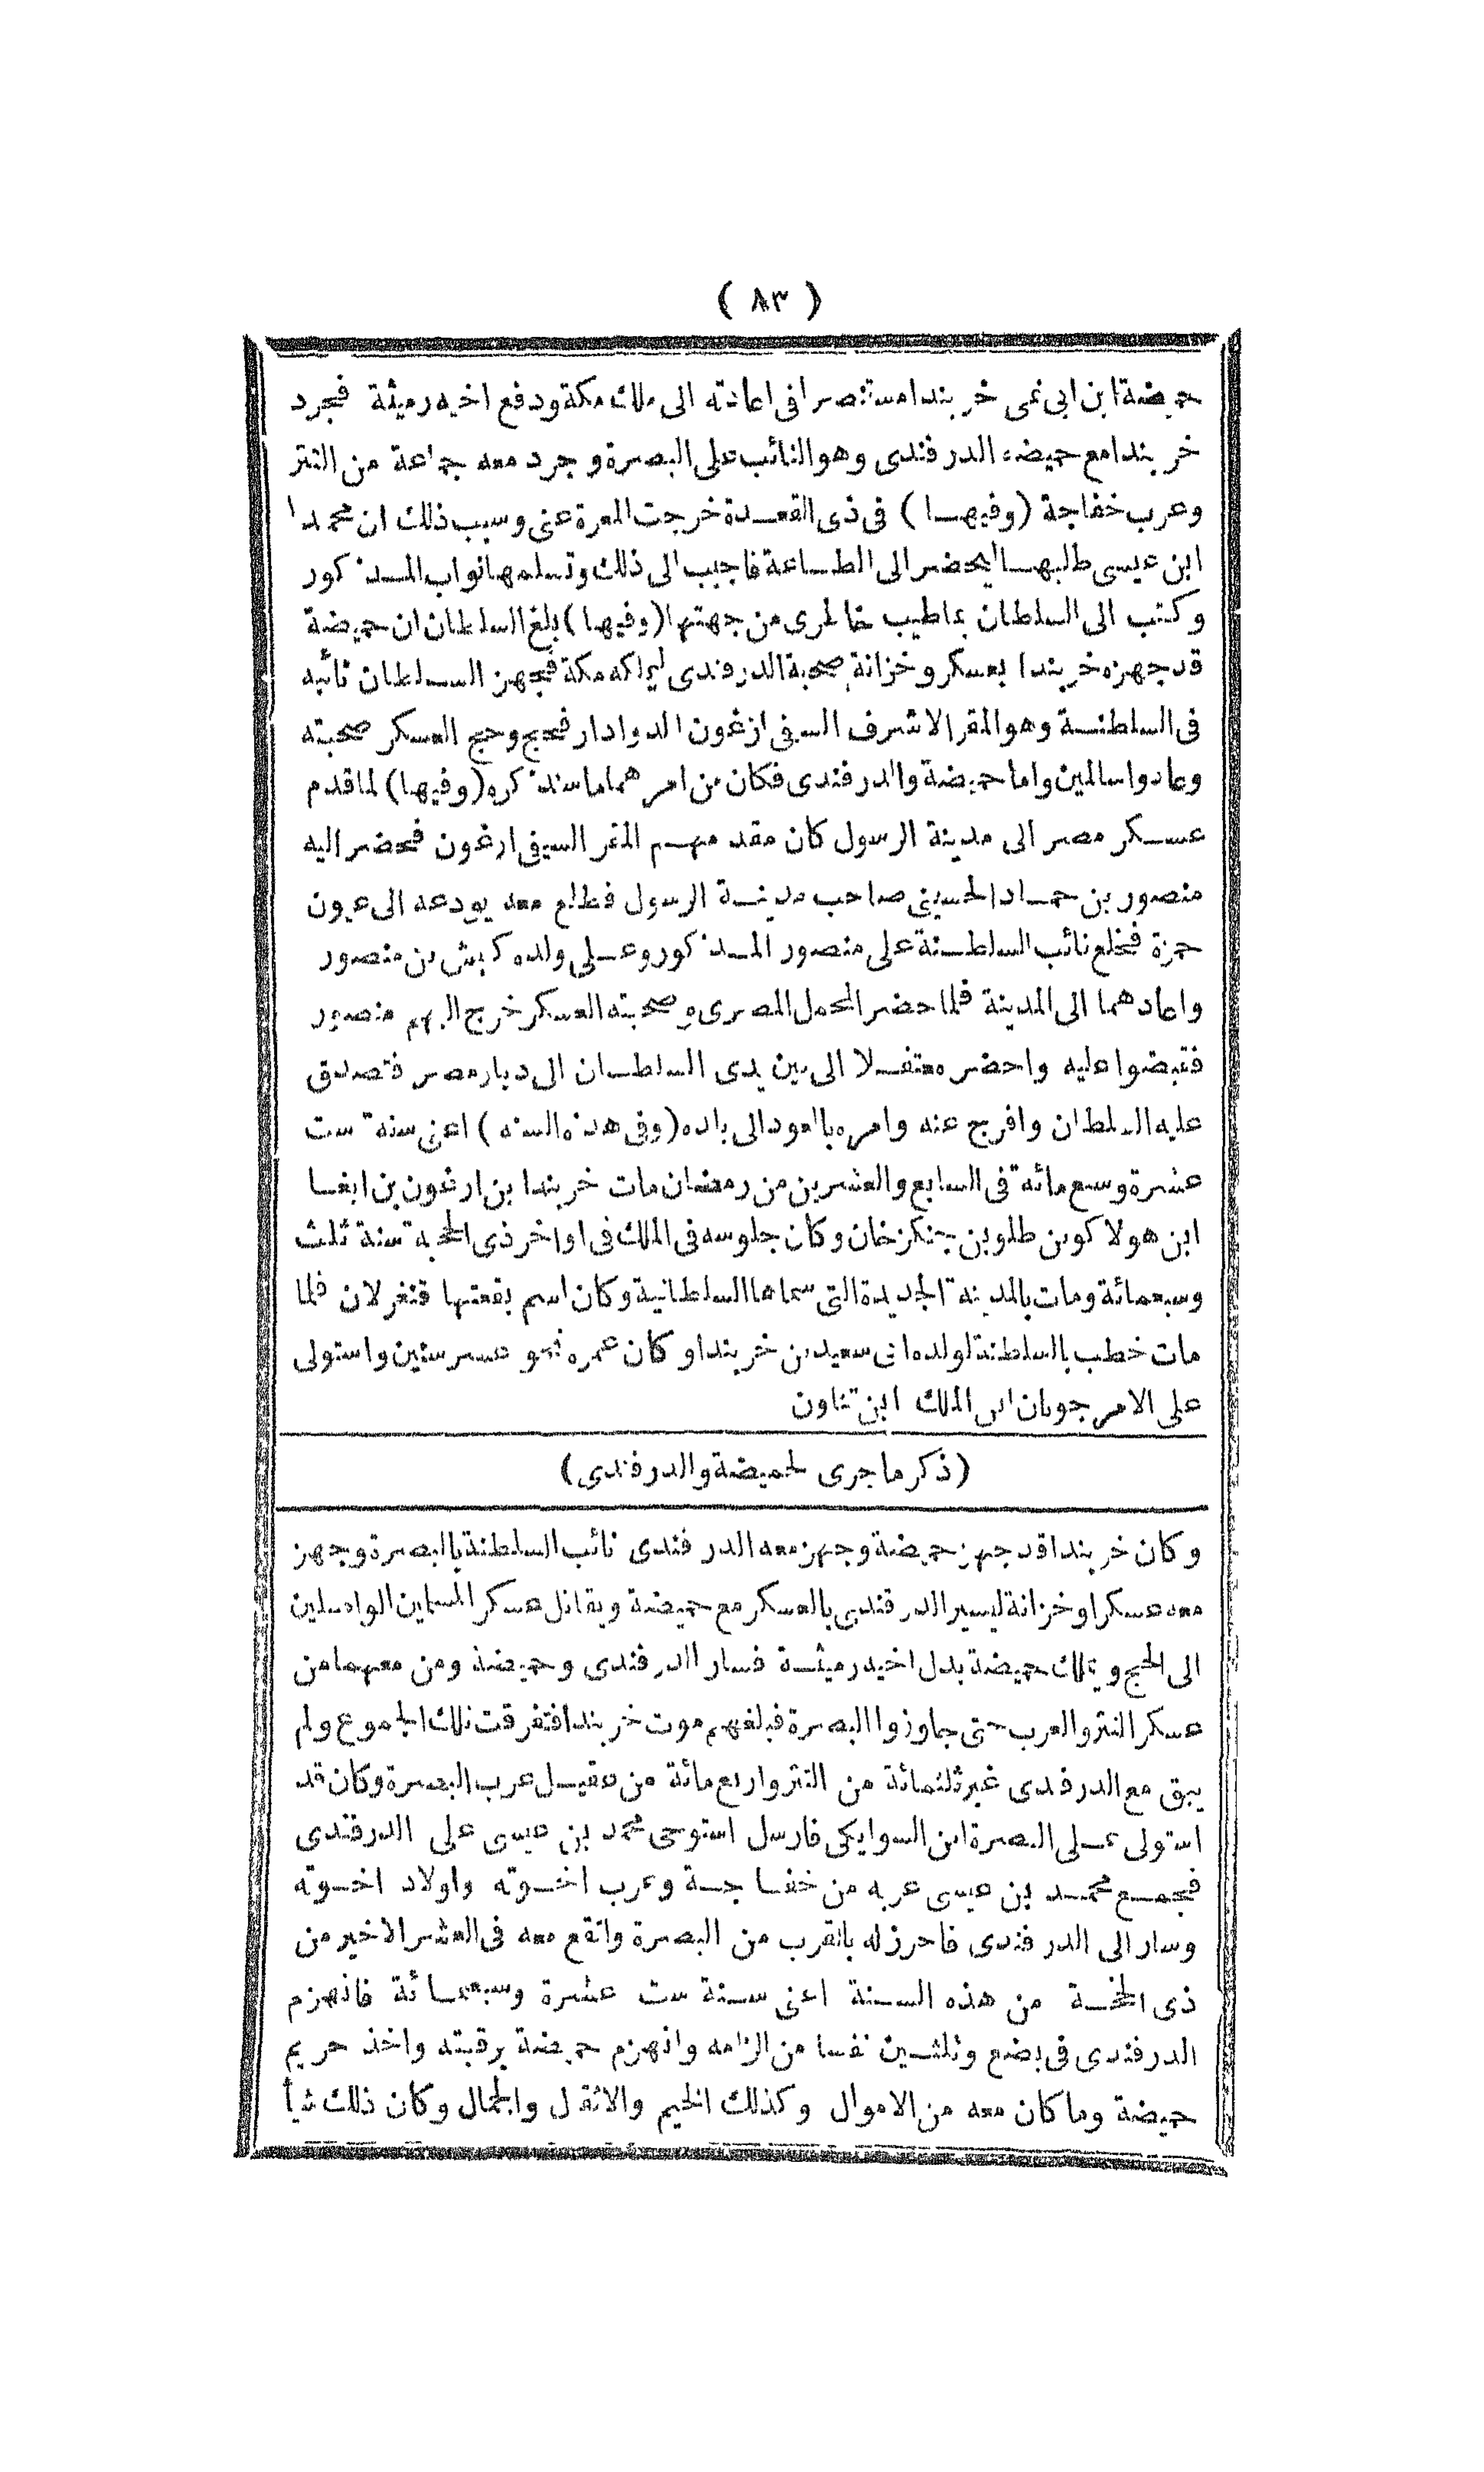 ( ٨٣ )
حميضة ابن ابى نمى خربندا مستنصرا فى اعادته الى ملك مكة ودفع اخيه رميثة فجرد
خربندا مع حميضة الدرفندى وهو النائب على البصرة وجرد معه جماعة من التتر
وعرب خفاجة (وفيها) فى ذى القعدة خرجت المعرة عنى وسبب ذلك ان محمدا
ابن عيسى طلبها ليحضر الى الطاعة فاجيب الى ذلك وتسلمها نواب المذكور
وكتب الى السلطان بما طيب خاطرى من جهتها (وفيها) بلغ السلطان ان حميضة
قد جهزه خربندا بعسكر وخزانة صحبة الدرفندى ليملكه مكة فجهز السلطان نائبه
فى السلطنة وهو المقر الاشرف السيفى ارغون الدوادار فحج وحج العسكر صحبته
وعادوا سالمين واما حميضة والدرفندى فكان من امرهما ما سنذكره (وفيها) لما قدم
عسكر مصر الى مدينة الرسول كان مقدمهم المقر السيفى ارغون فحضر اليه
منصور بن حماد الحسينى صاحب مدينة الرسول فطلع معه يودعه الى عيون
حمزة فخلع نائب السلطنة على منصور المذكور وعلى ولده كبيش بن منصور
واعادهما الى المدينة فلما حضر المحمل المصرى وصحبته العسكر خرج اليهم منصور
فقبضوا عليه واحضر معتقلا الى بين يدى السلطان الى ديار مصر فتصدق
عليه السلطان وافرج عنه وامره بالعود الى بلده (وفى هذه السنه) اعنى سنة ست
عشرة وسبع مائة فى السابع والعشرين من رمضان مات خربندا بن ارغون بن ابغا
ابن هولاكو بن طلو بن جنكزخان وكان جلوسه فى الملك فى اواخر ذى الحجة سنة ثلث
وسبعمائة ومات بالمدينة الجديدة التى سماها السلطانية وكان اسم بقعتها قنغرلان فلما
مات خطب بالسلطنة لولده ابى سعيد بن خربندا وكان عمره نحو عشر سنين واستولى
على الامر جوبان ابن الملك ابن تناون
(ذكر ما جرى لحميضة والدرفندى)
وكان خربندا قد جهز حميضة وجهز معه الدرفندى نائب السلطنة بالبصرة وجهز
معه عسكرا وخزانة ليسير الدرفندى بالعسكر مع حميضة ويقاتل عسكر المسلمين الواصلين
الى الحج ويملك حميضة بدل اخيه رميثة فسار الدرفندى وحميضة ومن معهما من
عسكر التتر والعرب حتى جاوزوا البصرة فبلغهم موت خربندا فتفرقت تلك الجموع ولم
يبق مع الدرفندى غير ثلثمائة من التتر واربع مائة من عقيل عرب البصرة وكان قد
استولى على البصرة ابن السوايكى فارسل استوحى محمد بن عيسى على الدرقندى
فجمع محمد بن عيسى عربه من خفاجة وعرب اخوته واولاد اخوته
وسار الى الدرفندى فاحرز له بالقرب من البصرة واتقع معه فى العشر الاخير من
ذى الحجة من هذه السنة اعنى سنة ست عشرة وسبعمائة فانهزم
الدرفندى فى بضع وثلثين نفسا من الزامه وانهزم حميضة برقبته واخذ حريم
حميضة وما كان معه من الاموال وكذلك الخيم والاثقال والجمال وكان ذلك شيأ